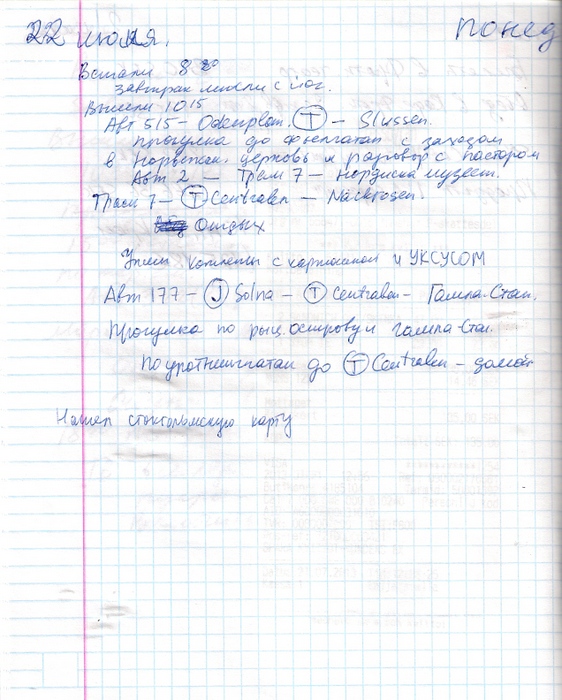 22 июля. понед
Встали 8 20
завтрак мюсли с йог.
Вышли 10 15
Авт 515 – Odenplan. (T) – Slussen.
Прогулка до фьелгатан с заходом
в Норвежск. церковь и разговор с пастором
Авт 2 – Трам 7 – Нордиска музеет.
Трам 7 – (T) Centralen – Näckrosen.
Отдых
Ужин котлеты с картошкой и УКСУСОМ
Авт 177 – (J) Solna – (T) Centralen – Гамла-Стан.
Прогулка по рыц. острову и гамла-Стан.
По дротнинггатан до (T) Centralen – домой
Нашел стокгольмскую карту